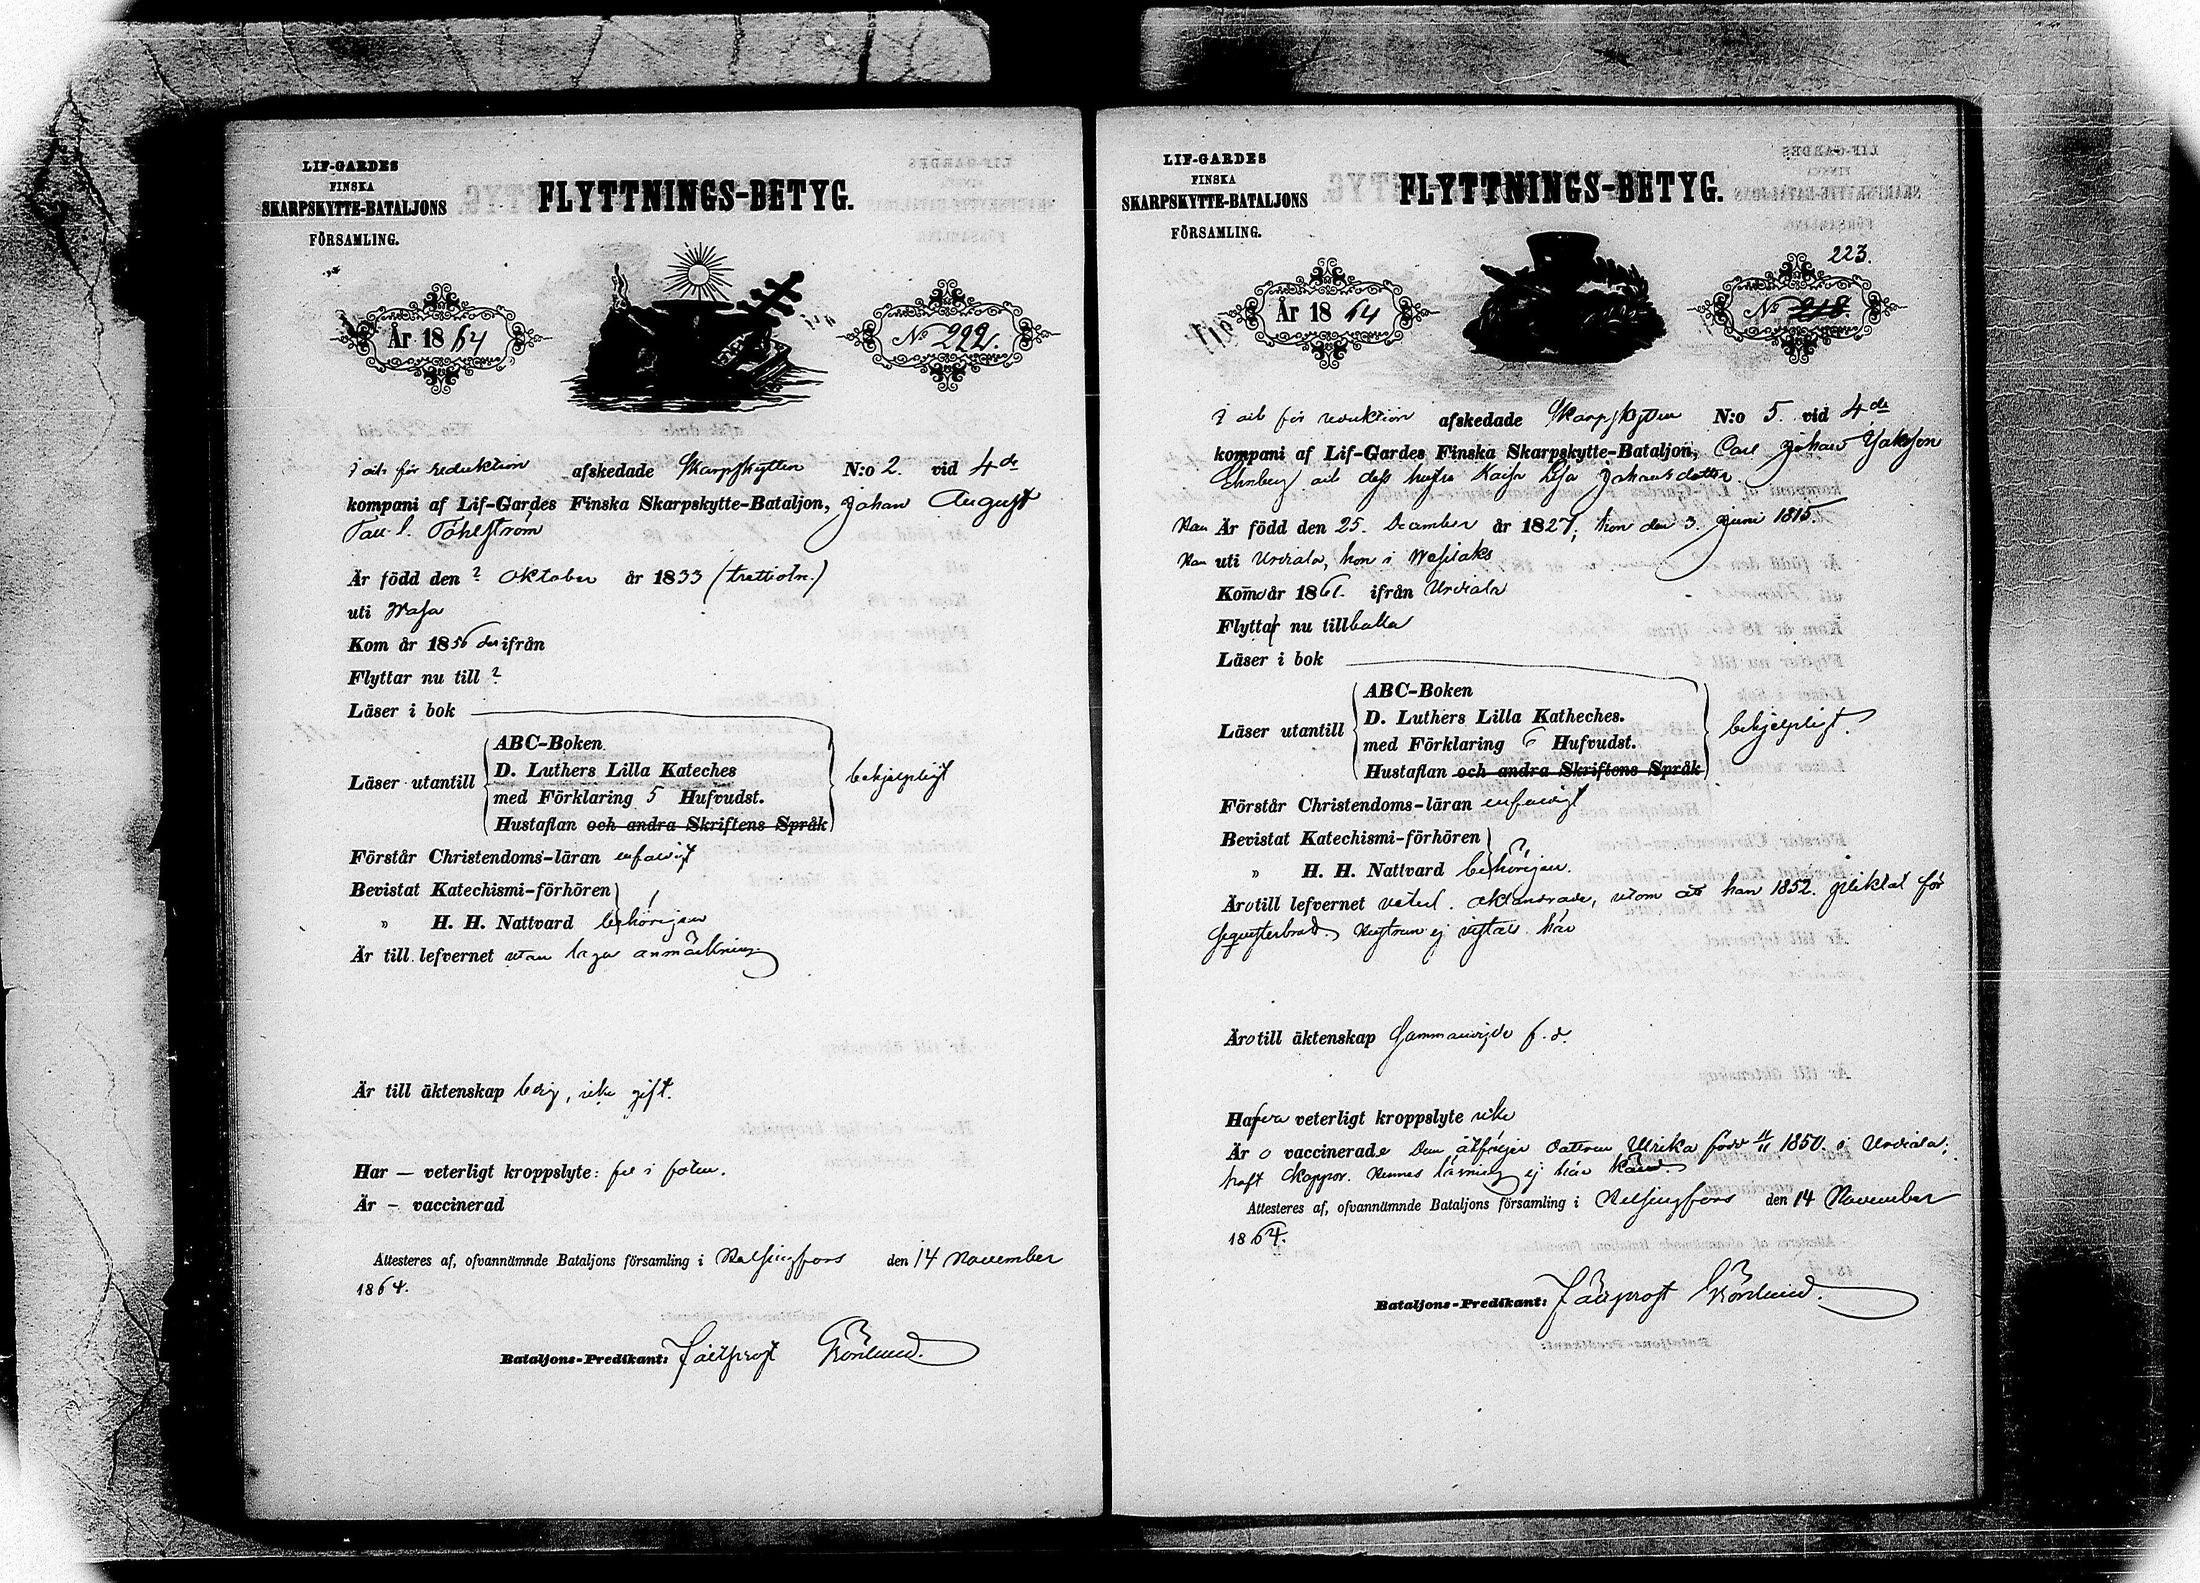 LIF-GARDES
FINSKA
SKARPSKYTTE-BATALJONS
FÖRSAMLING.
FLYTTNINGS-BETYG.
År 1864
No 222.
för reduktion afskedade Skarpskytten N:o 2. vid 4de
kompani af Lif-Gardes Finska Skarpskytte-Bataljon, Johan August
Är född den ? Oktober år 1833 (trettiotre.)
uti Wasa
Kom år 1856 ifrån
Flyttar nu till ?
Läser i bok
Läser utantill
ABC-Boken
D. Luthers Lilla Kateches
med Förklaring 5 Hufvudst.
Hustaflan och andra Skriftens Språk
behjelpligt
Förstår Christendoms-läran enfaldigt
Bevistat Katechismi-förhören
" H. H. Nattvard behörigen
Är till lefvernet utan laga anmärkning
Är till äktenskap ledig, icke gift.
Har — veterligt kroppslyte: fel i foten.
Är – vaccinerad
Attesteres af, ofvannämnde Bataljons församling i Helsingfors den 14 November
1864.
Bataljons-Predikant: Fältprost Grönlund.
LIF-GARDES
FINSKA
SKARPSKYTTE-BATALJONS
FÖRSAMLING.
FLYTTNINGS-BETYG.
223.
År 1864
No 218.
för reduktion afskedade Skarpskytten N:o 5. vid 4de
kompani af Lif-Gardes Finska Skarpskytte-Bataljon, Carl Johan
dess hustru Kaisa Lisa Johansdotter.
Han Är född den 25. December år 1827, hon den 3. Juni 1815.
Han uti Urdiala, hon i
Komo år 1861. ifrån Urdiala
Flytta nu till
Läser i bok
Läser utantill
ABC-Boken
D. Luthers Lilla Katheches.
med Förklaring 6 Hufvudst.
Hustaflan och andra Skriftens Språk
behjelpligt.
Förstår Christendoms-läran enfaldigt
Bevistat Katechismi-förhören
" H. H. Nattvard behörigen.
Äro till lefvernet utom att han 1852. pliktat för
Hustrun ej här
Äro till äktenskap Sammanvigde f. d.
Hafva veterligt kroppslyte icke
Är o vaccinerade Dem åtföljer dottren Ulrika född 11/11 1850. i Urdiala;
haft koppor. Hennes läsning ej här känd.
Attesteres af, ofvannämnde Bataljons församling i Helsingfors den 14 November
1864.
Bataljons-Predikant: Fältprost Grönlund.